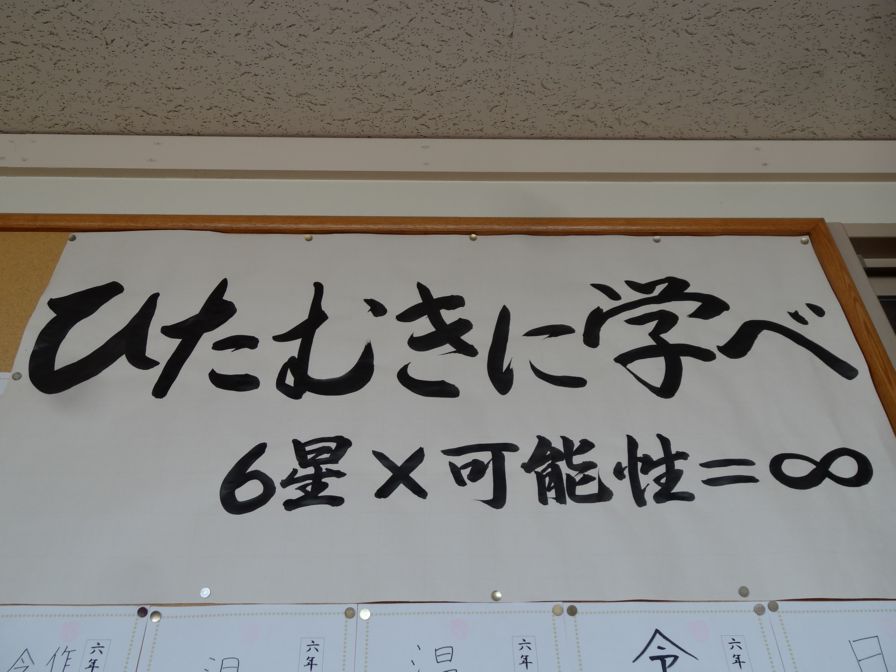 ひたむきに学べ
6星×可能性=∞
六年
六年
六年
六年
令
作
温
令
日